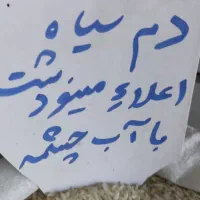 دم سیاه
اعلاء مینودشت
با آب چشمه